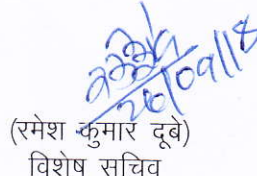 26/09/18
(रमेश कुमार दूबे)
विशेष सचिव